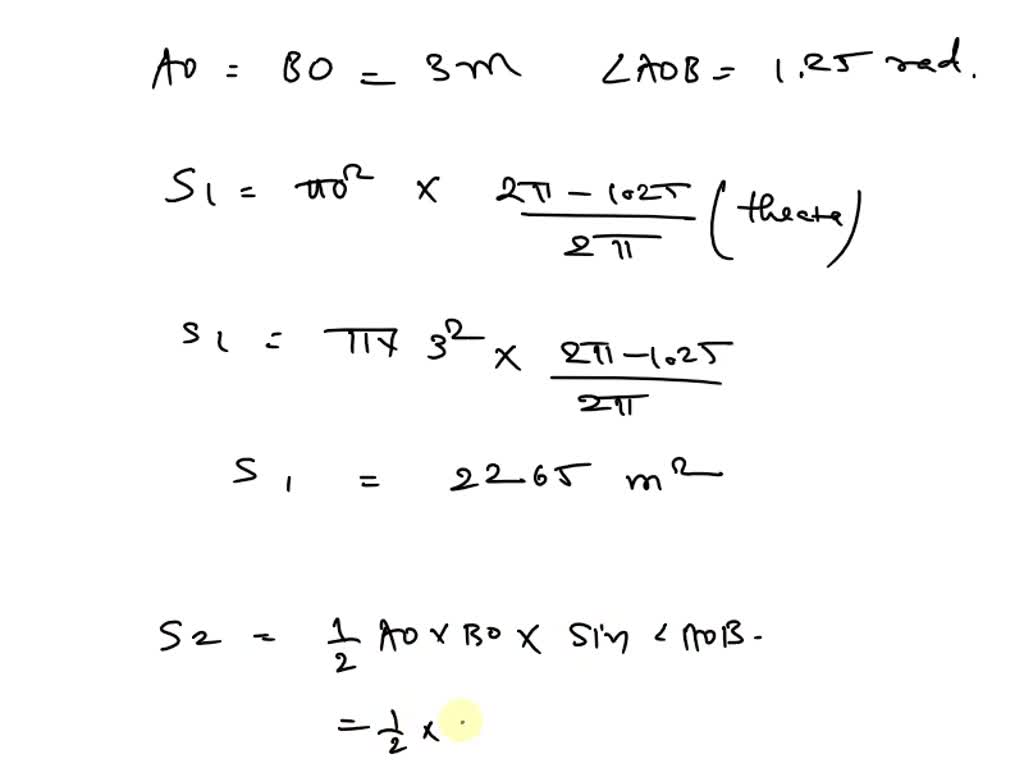 AO = BO = 3m ∠AOB = 1.25 rad.
S1 = πO² × (2π - 1.25)/(2π) (theata)
S1 = π× 3² × (2π - 1.25)/(2π)
S1 = 22.65 m²
S2 = 1/2 AO × BO × Sin ∠AOB.
= 1/2 × .